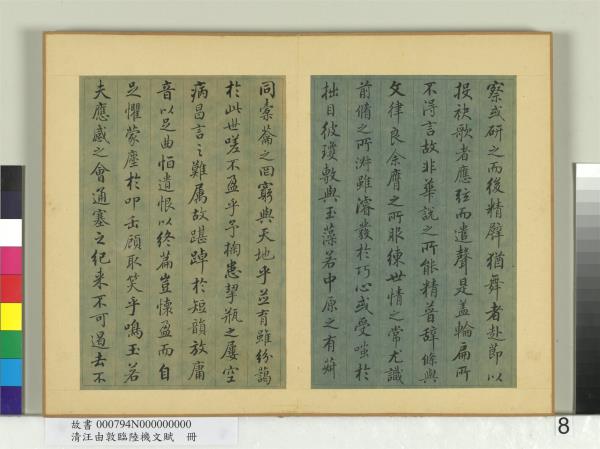 察或研之而後精辟猶舞者赴節以
投袂歌者應弦而遣聲是盖輪扁所
不得言故非華說之所能精普辭條與
文律良余膺之所服練世情之常尤識
前脩之所淑雖濬發於巧心或受嗤於
拙目彼瓊敷與玉藻若中原之有菽
同橐籥之罔窮與天地乎並育雖紛藹
於此世嗟不盈乎予掬患挈瓶之屢空
病昌言之難屬故踸踔於短韻放庸
音以足曲恒遺恨以終篇豈懷盈而自
足懼蒙塵於叩缶顧取笑乎鳴玉若
夫應感之會通塞之紀来不可遏去不
故書 000794N000000000
清汪由敦臨陸機文賦 冊
8